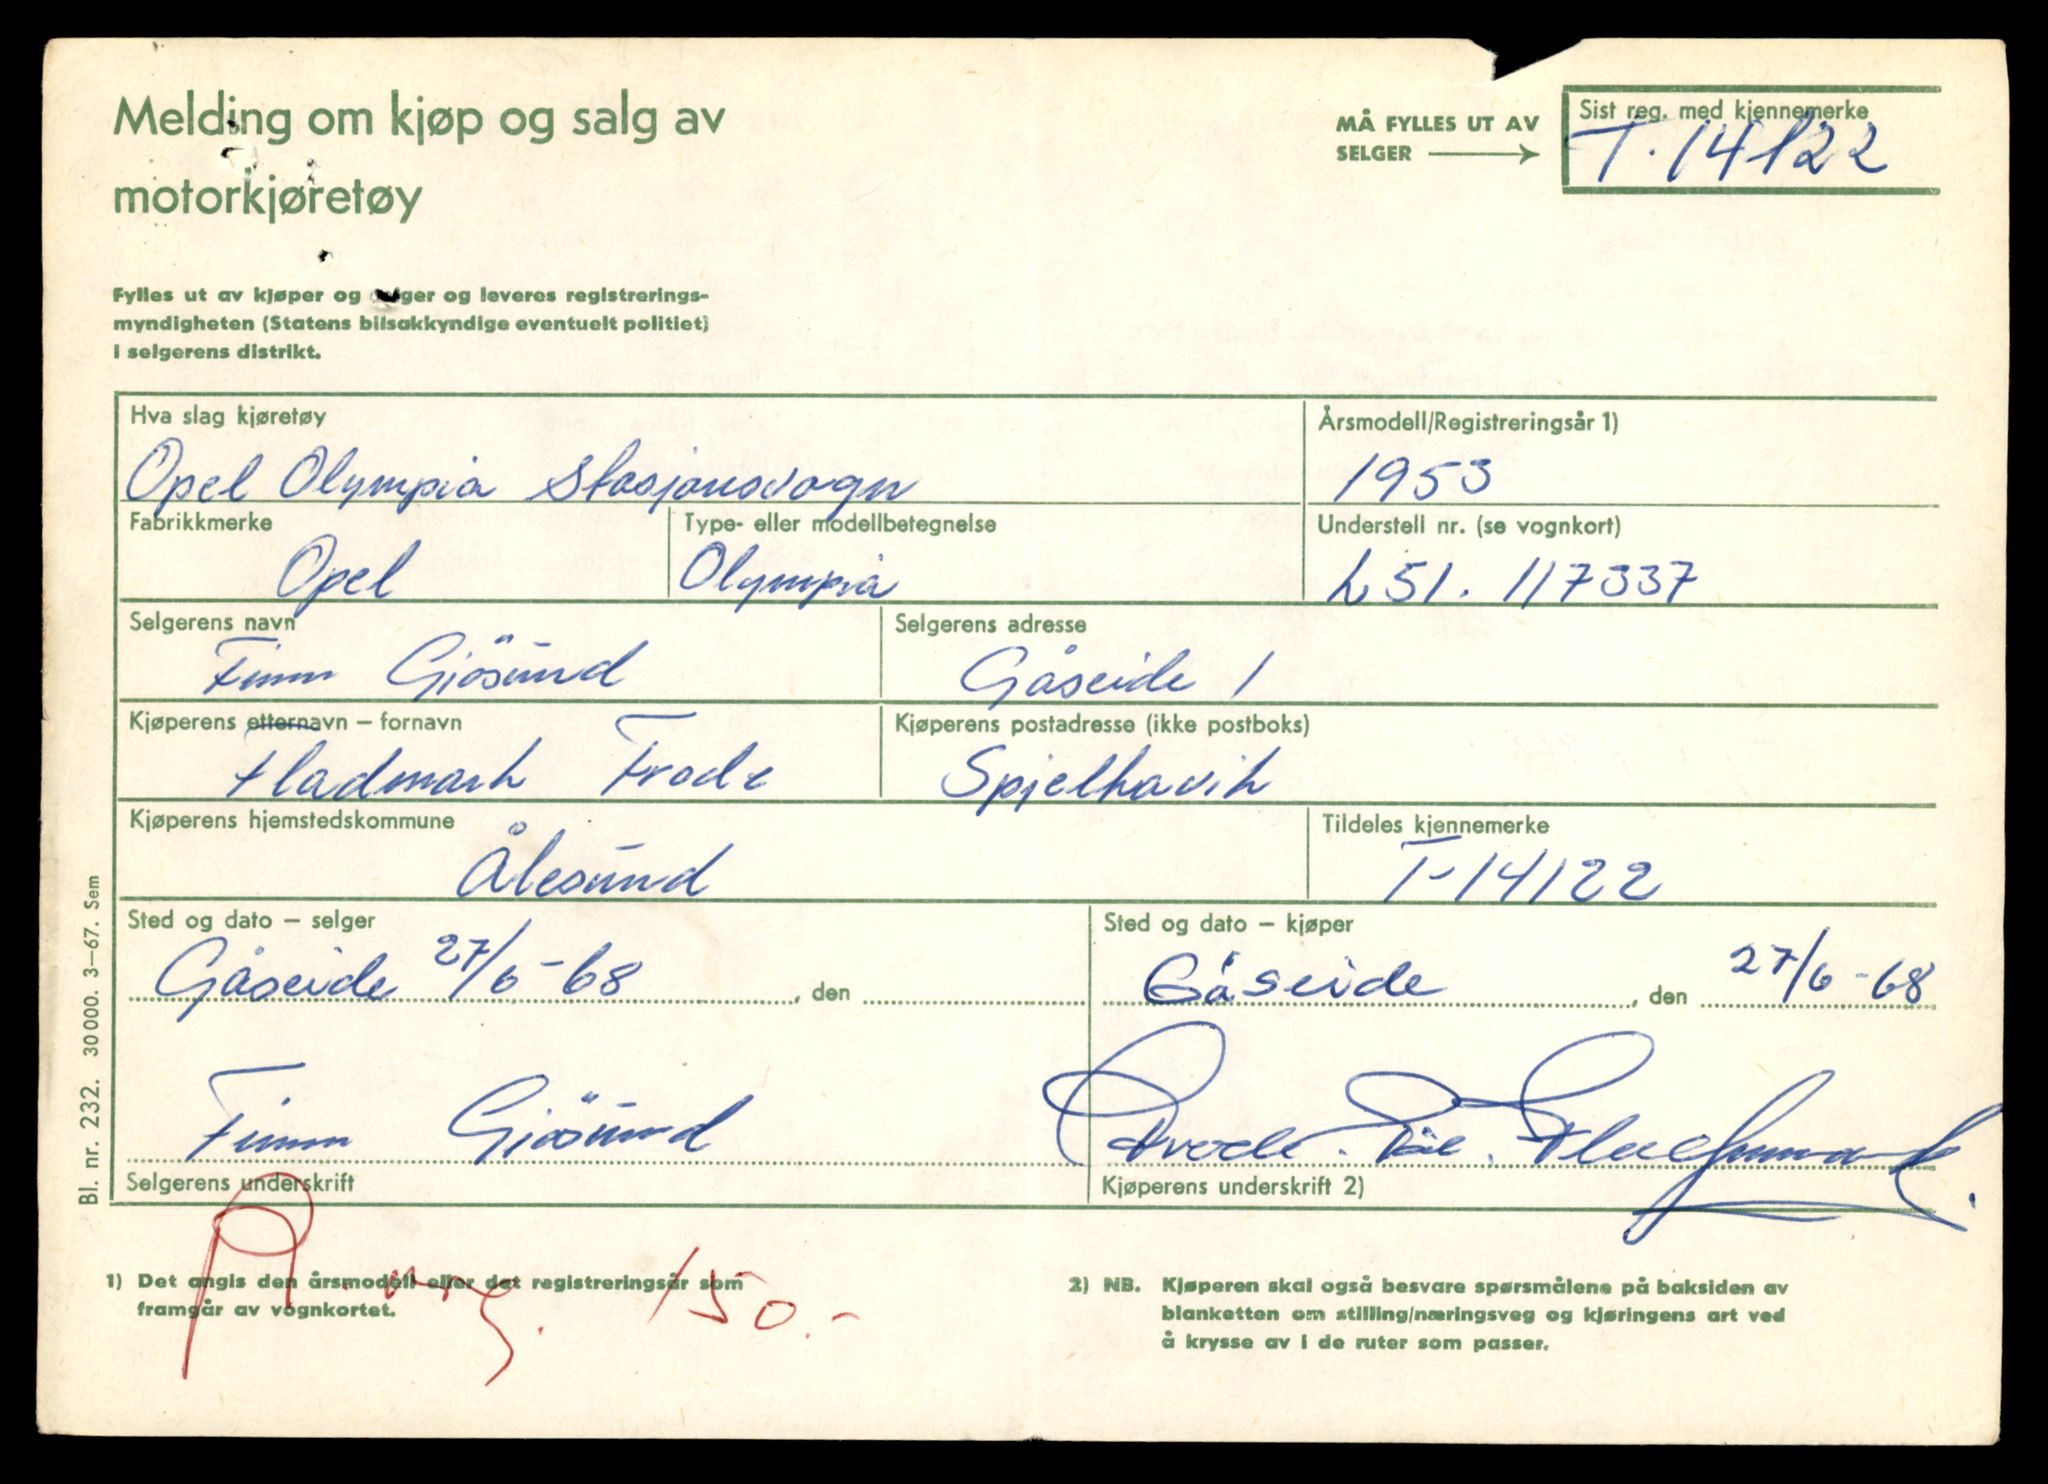 Melding om kjøp og salg av
motorkjøretøy
MÅ FYLLES UT AV
SELGER
Sist reg. med kjennemerke
T. 14122
Fylles ut av kjøper og selger og leveres registrerings-
myndigheten (Statens bilsakkyndige eventuelt politiet)
i selgerens distrikt.
Hva slag kjøretøy
Opel Olympia Stasjonsvogn
Årsmodell/Registreringsår 1)
1953
Fabrikkmerke
Opel
Type- eller modellbetegnelse
Olympia
Understell nr. (se vognkort)
L51. 117337
Selgerens navn
Finn Gjösund
Selgerens adresse
Gåseide 1
Kjøperens etternavn – fornavn
Fladmark Frode
Kjøperens postadresse (ikke postboks)
Spjelkavik
Kjøperens hjemstedskommune
Ålesund
Tildeles kjennemerke
T-14122
Sted og dato – selger
Gåseide 27/6-68, den
Sted og dato – kjøper
Gåseide, den 27/6-68
Finn Gjösund
Selgerens underskrift
Frode Fladmark.
Kjøperens underskrift 2)
150.-
1) Det angis den årsmodell eller det registreringsår som
framgår av vognkortet.
2) NB. Kjøperen skal også besvare spørsmålene på baksiden av
blanketten om stilling/næringsveg og kjøringens art ved
å krysse av i de ruter som passer.
Bl. nr. 232. 30000. 3–67. Sem